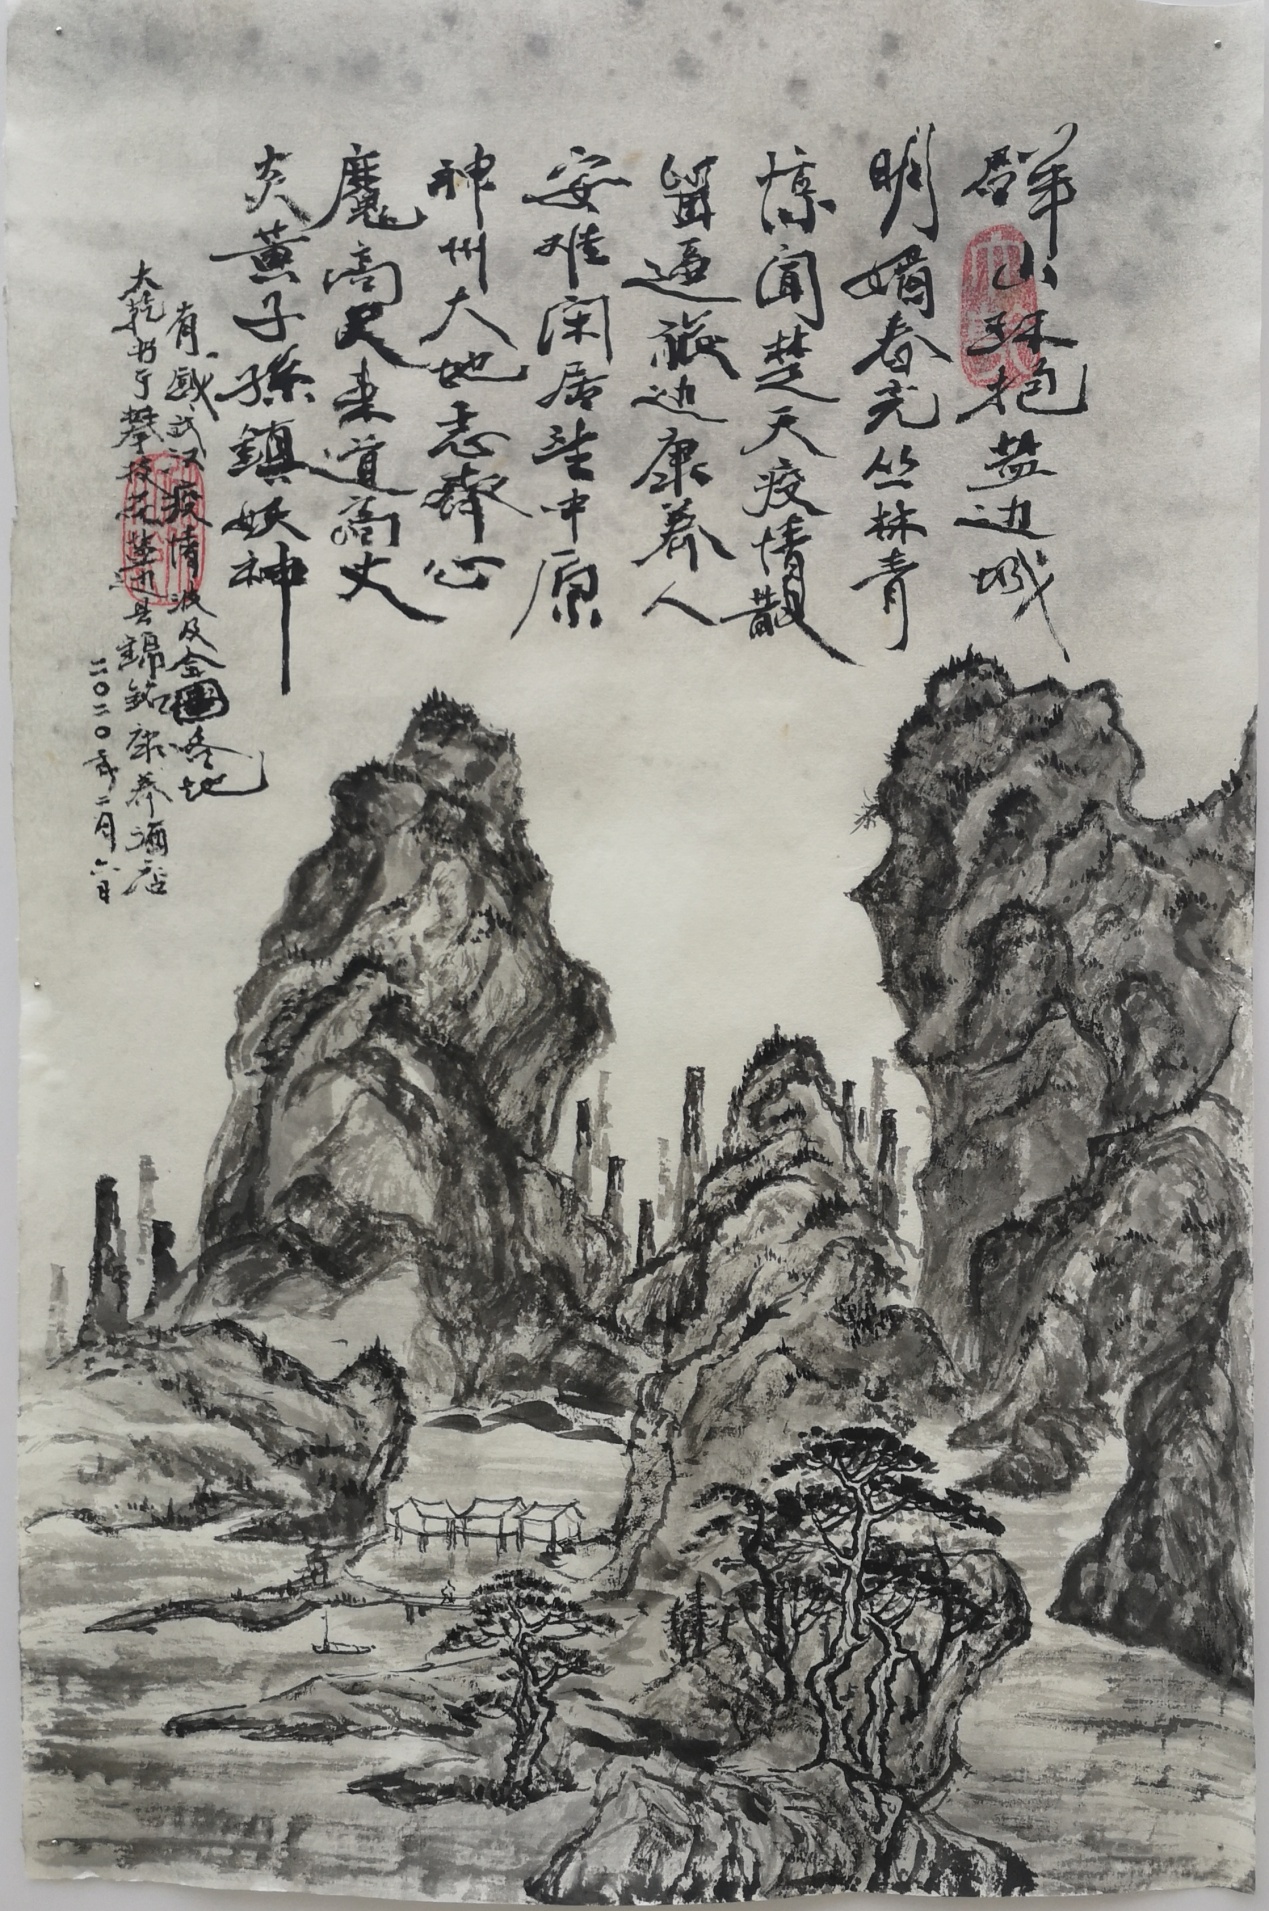 群山环抱盐边城
明媚春光丛林青
惊闻楚天疫情散
留逼旅边康养人
安难闲居望中原
神州大地志齐心
魔高尺来道高丈
炎黄子孫鎮妖神
有感武汉疫情波及全國各地
大乾书于攀枝花盐边县錦銘康养酒店
二〇二〇年二月六日